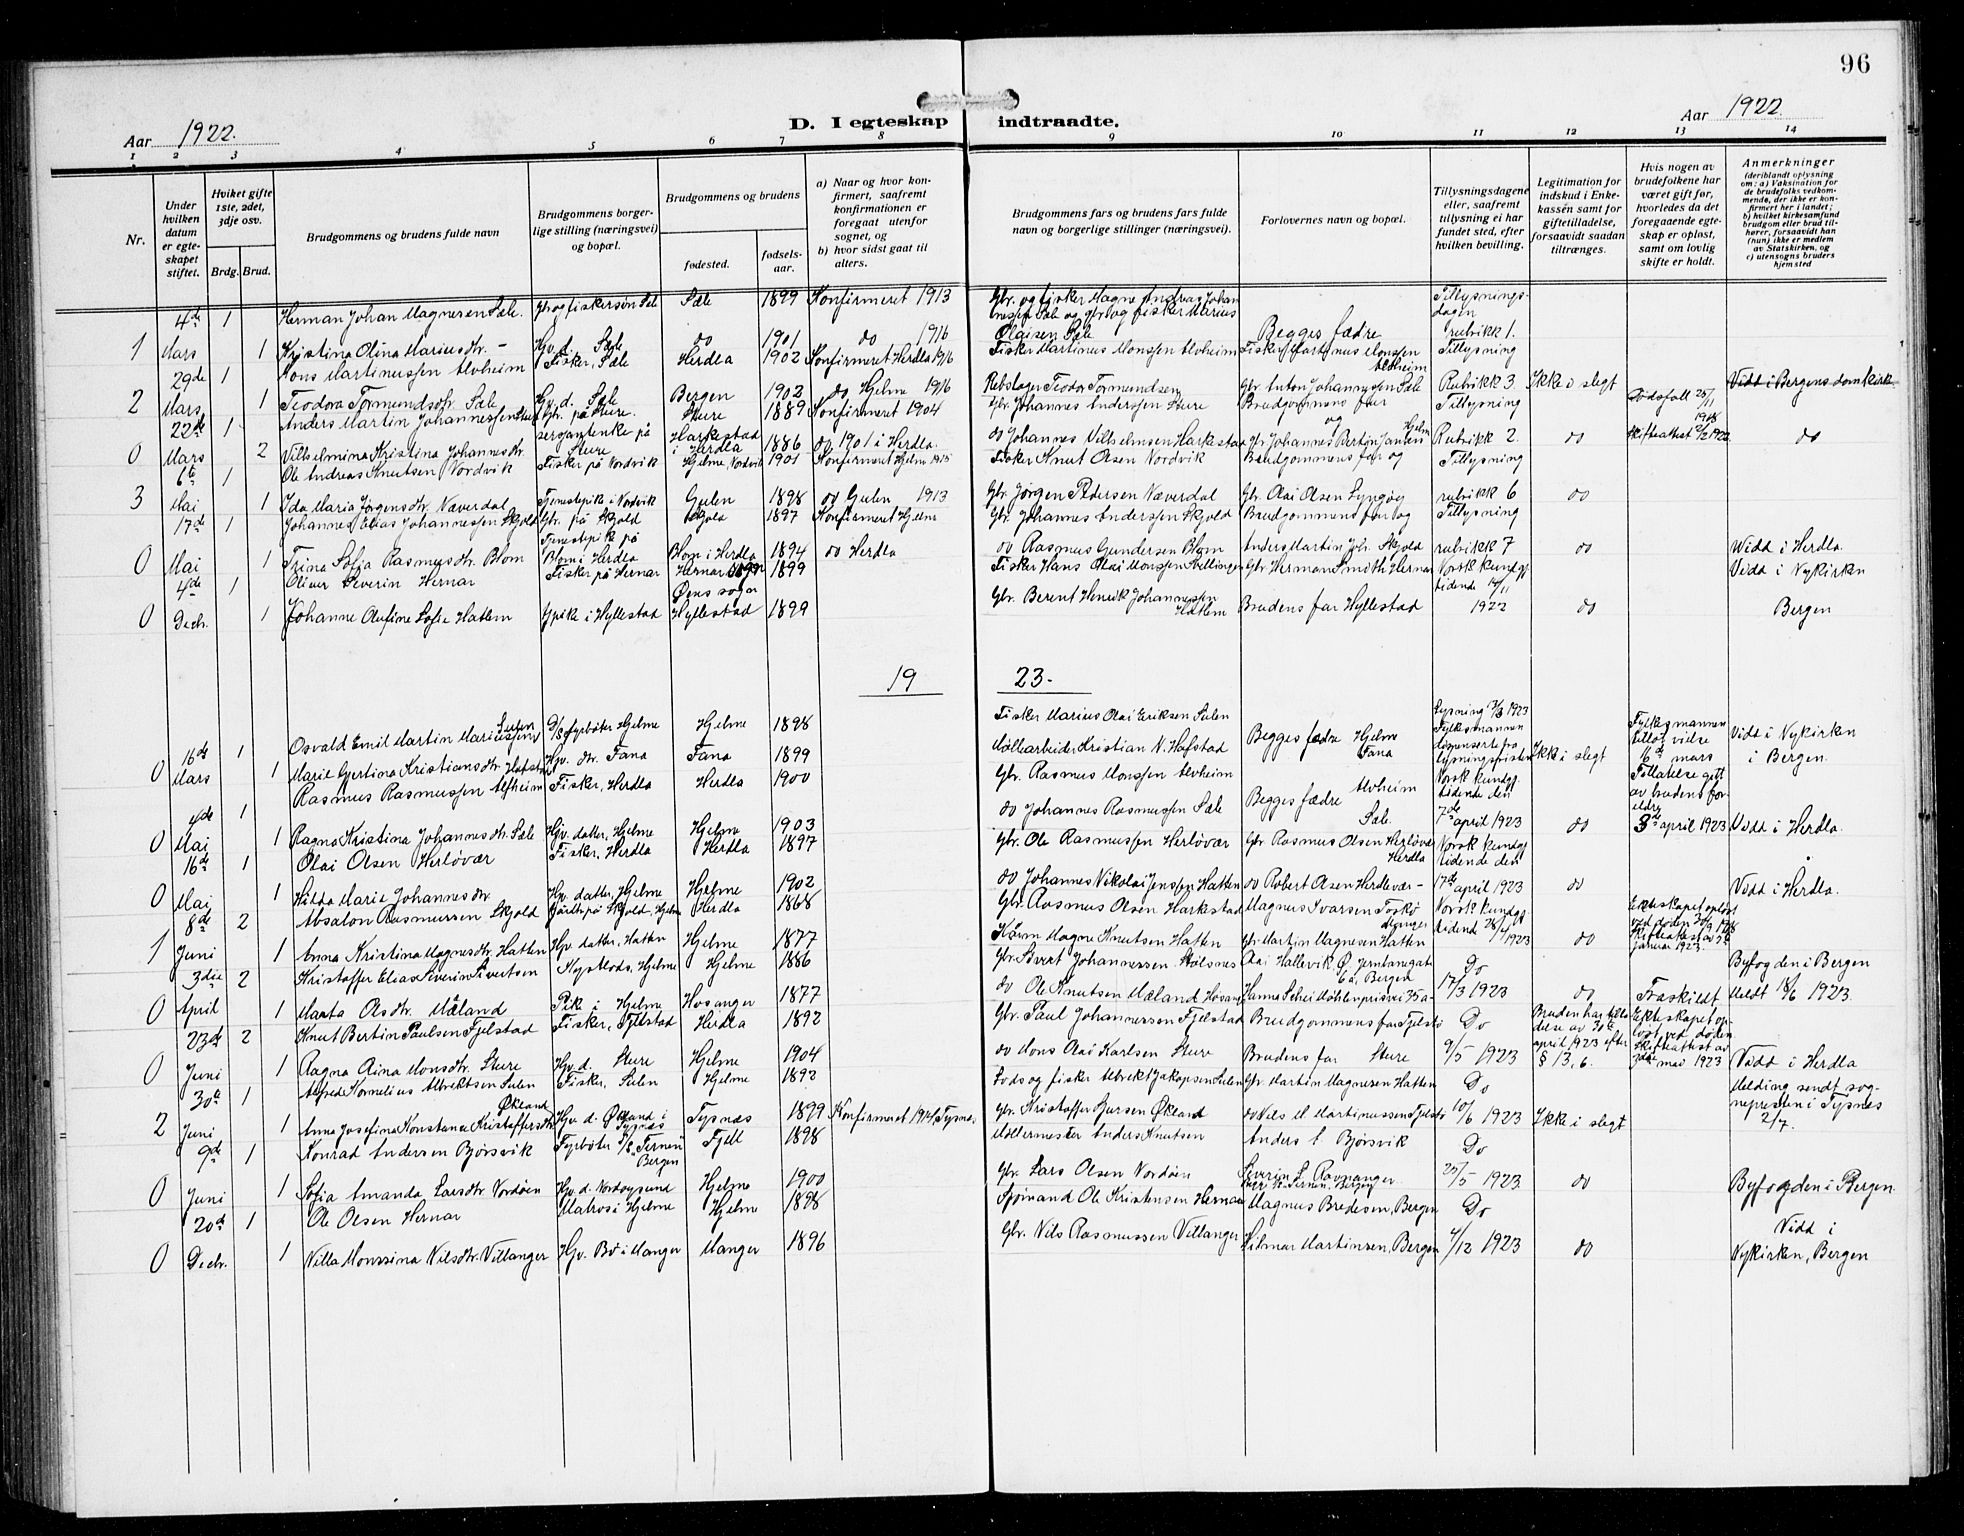 96
Aar 1922.
D. I egteskap indtraadte.
Aar 1922
1 2 3 4 5 6 7 8 9 10 11 12 13 14
Nr.
Under hvilken datum er egteskapet stiftet.
Hviket gifte 1ste, 2det, 3dje osv.
Brdg. Brud.
Brudgommens og brudens fulde navn
Brudgommens borgerlige stilling (næringsvei) og bopæl.
Brudgommens og brudens
fødested. fødselsaar.
a) Naar og hvor konfirmert, saafremt konfirmationen er foregaat utenfor sognet, og
b) hvor sidst gaat til alters.
Brudgommens fars og brudens fars fulde navn og borgerlige stillinger (næringsvei).
Forlovernes navn og bopæl.
Tillysningsdagene eller, saafremt tillysning ei har fundet sted, efter hvilken bevilling.
Legitimation for indskud i Enkekassén samt for giftetilladelse, forsaavidt saadan tiltrænges.
Hvis nogen av brudefolkene har været gift før, hvorledes da det foregaaende egteskap er opløst, samt om lovlig skifte er holdt.
Anmerkninger (deriblandt oplysning om: a) Vaksination for de brudefolks vedkommende, der ikke er konfirmert her i landet; b) hvilket kirkesamfund brudgom eller brud tilhører, forsaavidt han (hun) ikke er medlem av Statskirken, og c) utensogns bruders hjemsted
4de 1 Herman Johan Magnesen Sæle. Gbr og fiskersøn Sæle Sæle 1899 Konfirmeret 1913 Gbr. og fisker Magne Andreas Johannesen Sæle og gbr og fisker Marius Olaisen Sæle Begges fædre Tillysningsdagen rubrikk 1.
1 Mars 1 Kristina Olina Mariusdtr. - Hv. d. Sæle do 1901 do 1916
29de 1 Mons Martinussen Alvheim Fisker, Sæle Herdla 1902 Konfirmeret Herdla 1916 Fisker Martinus Monssen Alvheim Fisker Martinus Monssen Alvheim Tillysning
2 Mars 1 Teodora Tormundsdtr. Sæle Hv. d. Sæle Bergen 1902 do Hjelme 1916 Rebslager Teodor Tormundsen Gbr Anton Johannessen Sæle Rubrikk 3 Ikke i slegt Vidd i Bergens domkirke
22de 1 Anders Martin Johannessen Sture Gbr. på Sture. Sture 1889 Konfirmeret 1904 Gbr. Johannes Anderssen Sture Brudgommens far og Tillysning Dødsfall 25/11 1918
0 Mars 2 Vilhelmina Kristina Johannesdtr. sergantenke på Sture Harkestad i Herdla 1886 do 1901 i Herdla. do Johannes Vilhelmsen Harkestad Gbr Johannes Bertin Jansen Hjelme Rubrikk 2. do Skifteattest 2/2 1922. do
6te 1 Ole Andreas Knutsen Nordvik Fisker på Nordvik Hjelme, Nordvik 1901 Konfirmeret Hjelme 1915 Fisker Knut Olsen Nordvik Brudgommens far og Tillysning
3 Mai 1 Ida Maria Jørgensdtr. Næverdal Tjenestepik i Nordvik Gulen 1898 do Gulen 1913 Gbr. Jørgen Pedersen Næverdal Gbr. Olai Olsen Lyngøy rubrikk 6 do
17de 1 Johannes Elias Johannessen Skjold Gbr. på Skjold Skjold 1897 Konfirmeret Hjelme Gbr. Johannes Anderssen Skjold Brudgommens far og Tillysning
0 Mai 1 Trina Sofia Rasmusdtr. Blom Tjenestepik på Blom i Herdla Blom i Herdla 1894 do Herdla do Rasmus Gundersen Blom Anders Martin Joh. Skjold rubrikk 7 do Vidd i Herdla.
4de 1 Oliver Severin Hernar Fisker på Hernar Hernar 1899 Fisker Hans Olai Monssen Hellingen Gbr Herman Smith Hernar Norsk kundgj. tidende 14/11 Vidd i Nykirken
0 Decbr. 1 Johanne Olufine Sofie Hatlem Gpike i Hyllestad Øens sogn Hyllestad 1899 Gbr. Berent Henrik Johannessen Hatlem Brudens far Hyllestad 1922 do Bergen
19 23-
16de 1 Osvald Emil Martin Mariussen Sulen D/S Fyrbøter Hjelme Hjelme 1898 Fisker Marius Olai Eriksen Sulen Begges fædre Hjelme Fana Lysning 7/3 1923 Fylkesmannen dispenserte fra lysningsfristen Fylkesmannens tillot vidre 16de mars Vidd i Nykirken
0 Mars 1 Marie Gjertina Kristiansdtr. Hafstad Hjv. dtr. Fana Fana 1899 Møllarbeider Kristian N. Hafstad Ikke i slegt i Bergen.
4de 1 Rasmus Rasmussen Alfheim Fisker, Herdla Herdla 1900 Gbr. Rasmus Monssen Alvheim Begges fædre Alvheim Sæle. Norsk kundgj. tidende den Tillatelse gitt av brudens foreldre
0 Mai 1 Ragna Kristina Johannesdtr. Sæle Hjv. datter, Hjelme Hjelme 1903 do Johannes Rasmussen Sæle 7de april 1923 do 3de april 1923 Vidd i Herdla.
16de 1 Olai Olsen Herløvær Fisker, Herdla Herdla 1897 Gbr. Ole Rasmussen Herløvær Gbr Rasmus Olsen Herløvær Herdla Norsk kundgj tidende den
0 Mai 1 Hilda Marie Johannesdtr. Hjv. datter, Hjelme Hjelme 1902 do Johannes Nikolai Jenssen Hatten do Robert Olsen Herdlevær - 17de april 1923 do Vidd i Herdla.
8de 2 Absalon Rasmussen Skjold Gårdbr. på Skjold, Hjelme Herdla 1868 Gbr. Rasmus Olsen Harkestad Magnus Ivarsen Toskø Manger Norsk kundgj. Ekteskapet opløst ved døden 30/9 1918
1 Juni 1 Anna Kristina Magnesdtr. Hatten Hjv. datter, Hatten Hjelme 1877 Kårm. Magne Knutsen Hatten Gbr Martin Magnesen Hatten tidend 28/4 1923 do Skifteattest av januar 1923.
3die 2 Kristoffer Elias Severin Sivertsen Kystlods, Hjelme Hjelme 1886 Gbr. Sivert Johannessen Stølsnes Olai Hallevik, Ø. Jerntanegate 6a, Bergen Do Byfogden i Bergen
0 April 1 Marta Olsdtr. Mæland Pik i Hjelme Hosanger 1877 do Ole Knutsen Mæland Hosang Hanna Schei Møhlenprisvei 35a- 17/3 1923 do Fraskildt Meldt 18/6 1923.
23de 2 Knut Bertin Paulsen Fjelstad Fisker, Fjelstad Herdla 1892 Gbr. Paul Johannessen Fjelstad Brudgommens far Fjelstd Do Bruden har tilladelse av 30te april 1923 efter § 13, 6. Ekteskapet opløst ved døden Skifteattest av 3die mai 1923
0 Juni 1 Ragna Aina Monsdtr. Sture Hjv. d. Sture Hjelme 1904 do Mons Olai Karlsen Sture Brudens far Sture 9/5 1923 Vidd i Herdla
30te 1 Alfred Kornelius Albriktsen Sulen Fisker, Sulen Hjelme 1892 Lods og fisker Albrekt Jakopsen Sulen Gbr. Martin Magnesen Hatten Do Melding sendt sognepresten i Tysnes 2/7.
2 Juni 1 Anna Josefina Konstanse Kristoffersdtr. Økland Hjv. d. Økland i Tysnæs Tysnæs 1899 Konfirmeret 1914, Tysnæs Gbr. Kristoffer Sjursen Økland do Nils M. Martinussen Fjelstd 10/6 1923 Ikke i slegt
9de 1 Konrad Andersen Bjørsvik Fyrbøter D/S Ternen Bergen Fjell 1898 Møllermester Anders Knutsen Anders A. Bjørsvik Do
0 Juni 1 Sofia Amanda Larsdtr. Nordøen Hjv. d. Nordøysund Hjelme 1900 Gbr. Lars Olsen Nordøen Severin S. Ravnanger 25/5 1923. do Byfogden i Bergen
20de 1 Ole Olsen Hernar Matros i Hjelme Hjelme 1898 Sjømand Ole Kristensen Hernar Magnus Bredesen, Bergen Do Vidd i
0 Decbr. 1 Nilla Monssina Nilsdtr. Villanger Hjv. Bø i Manger Manger 1896 Gbr. Nils Rasmussen Villanger Hilmar Martinsen, Bergen 4/12 1923 do Nykirken, Bergen